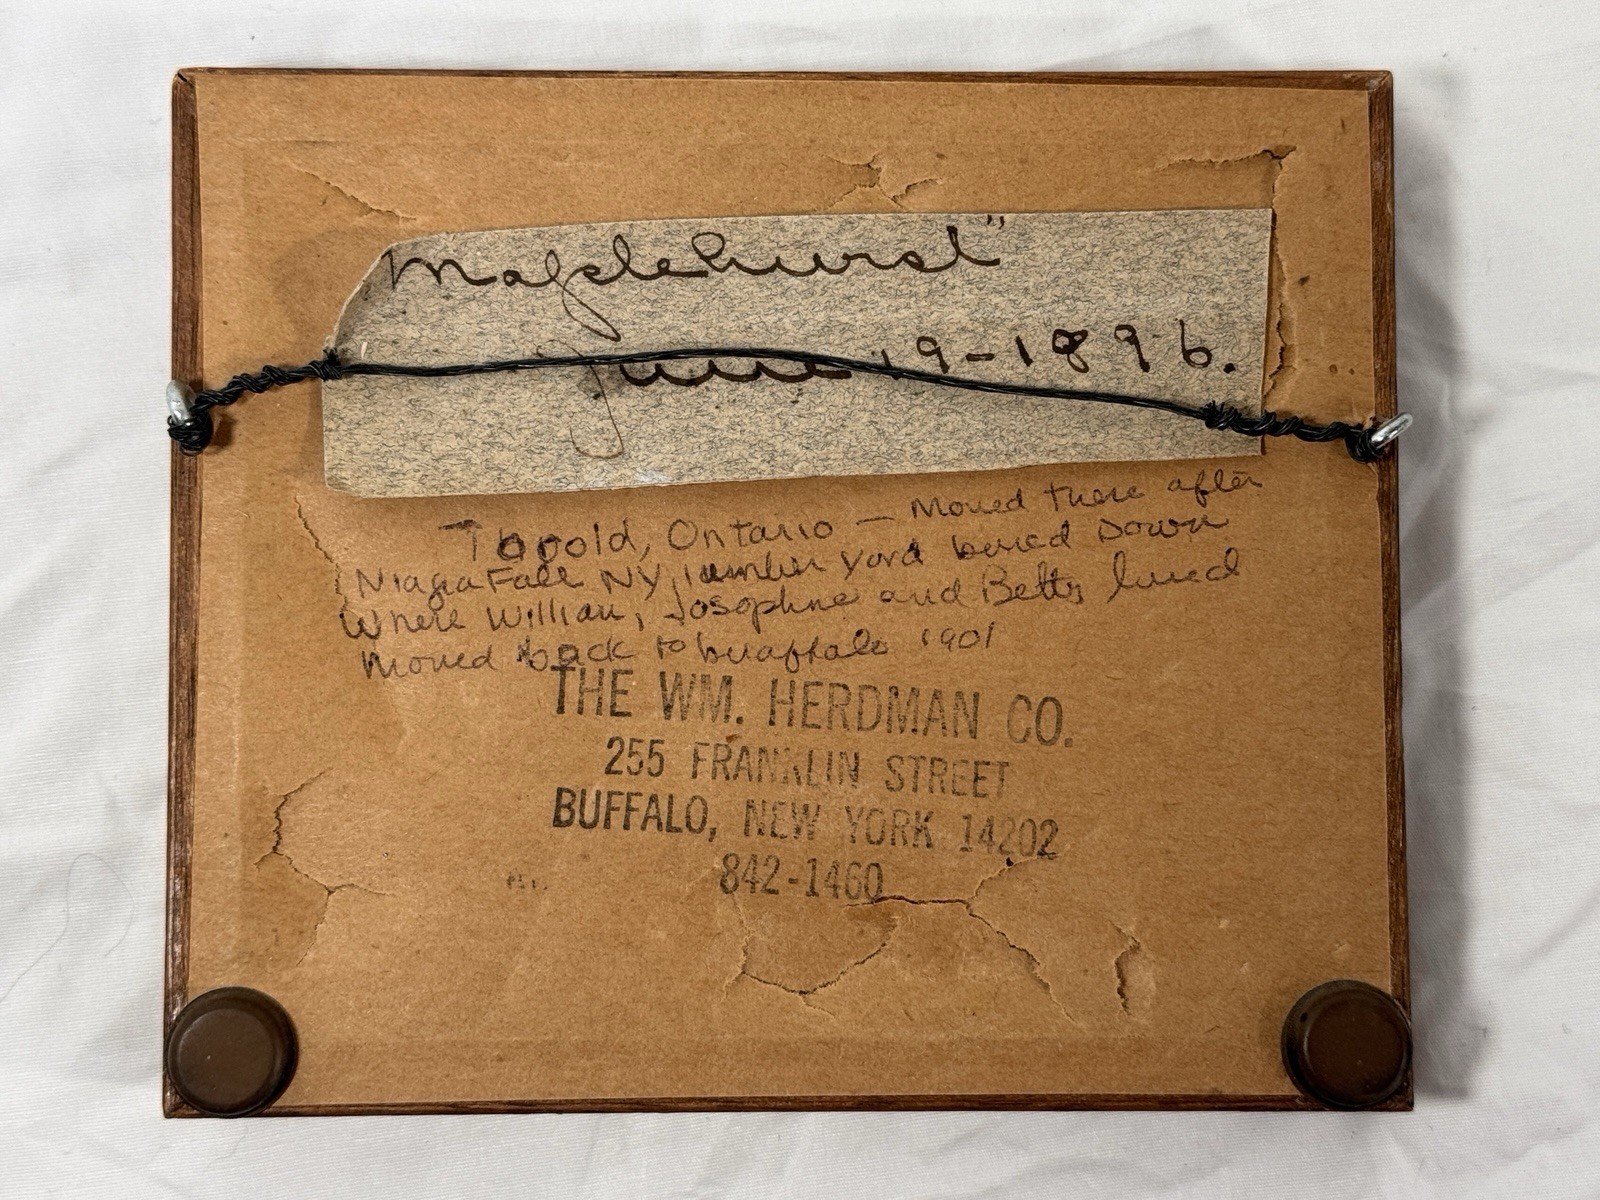 Maplehurst"
June 19-1896.
Thorold, Ontario — Moved there after
Niagra Fall NY, lumber yard burned Down
Where William, Josephine and Betty lived
moved back to 1901
THE WM. HERDMAN CO.
255 FRANKLIN STREET
BUFFALO, NEW YORK 14202
842-1460